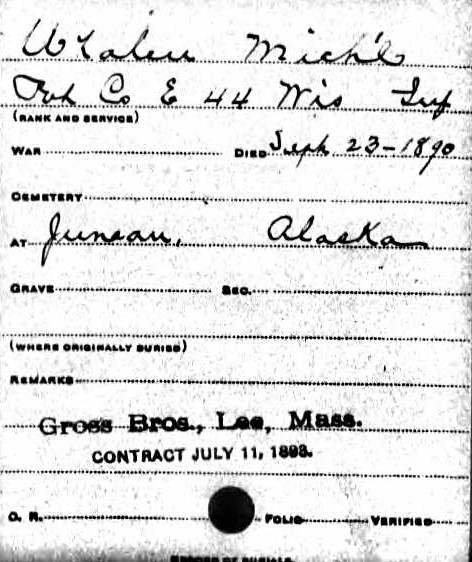 Whalen Mich'l
Pvt Co E 44 Wis Inf
(RANK AND SERVICE)
WAR DIED Sept 23-1890
CEMETERY
AT Juneau, Alaska
GRAVE SEC.
(WHERE ORIGINALLY BURIED)
REMARKS
Gross Bros., Lee, Mass.
CONTRACT JULY 11, 1893.
O. R. FOLIO VERIFIED
RECORD OF BURIALS